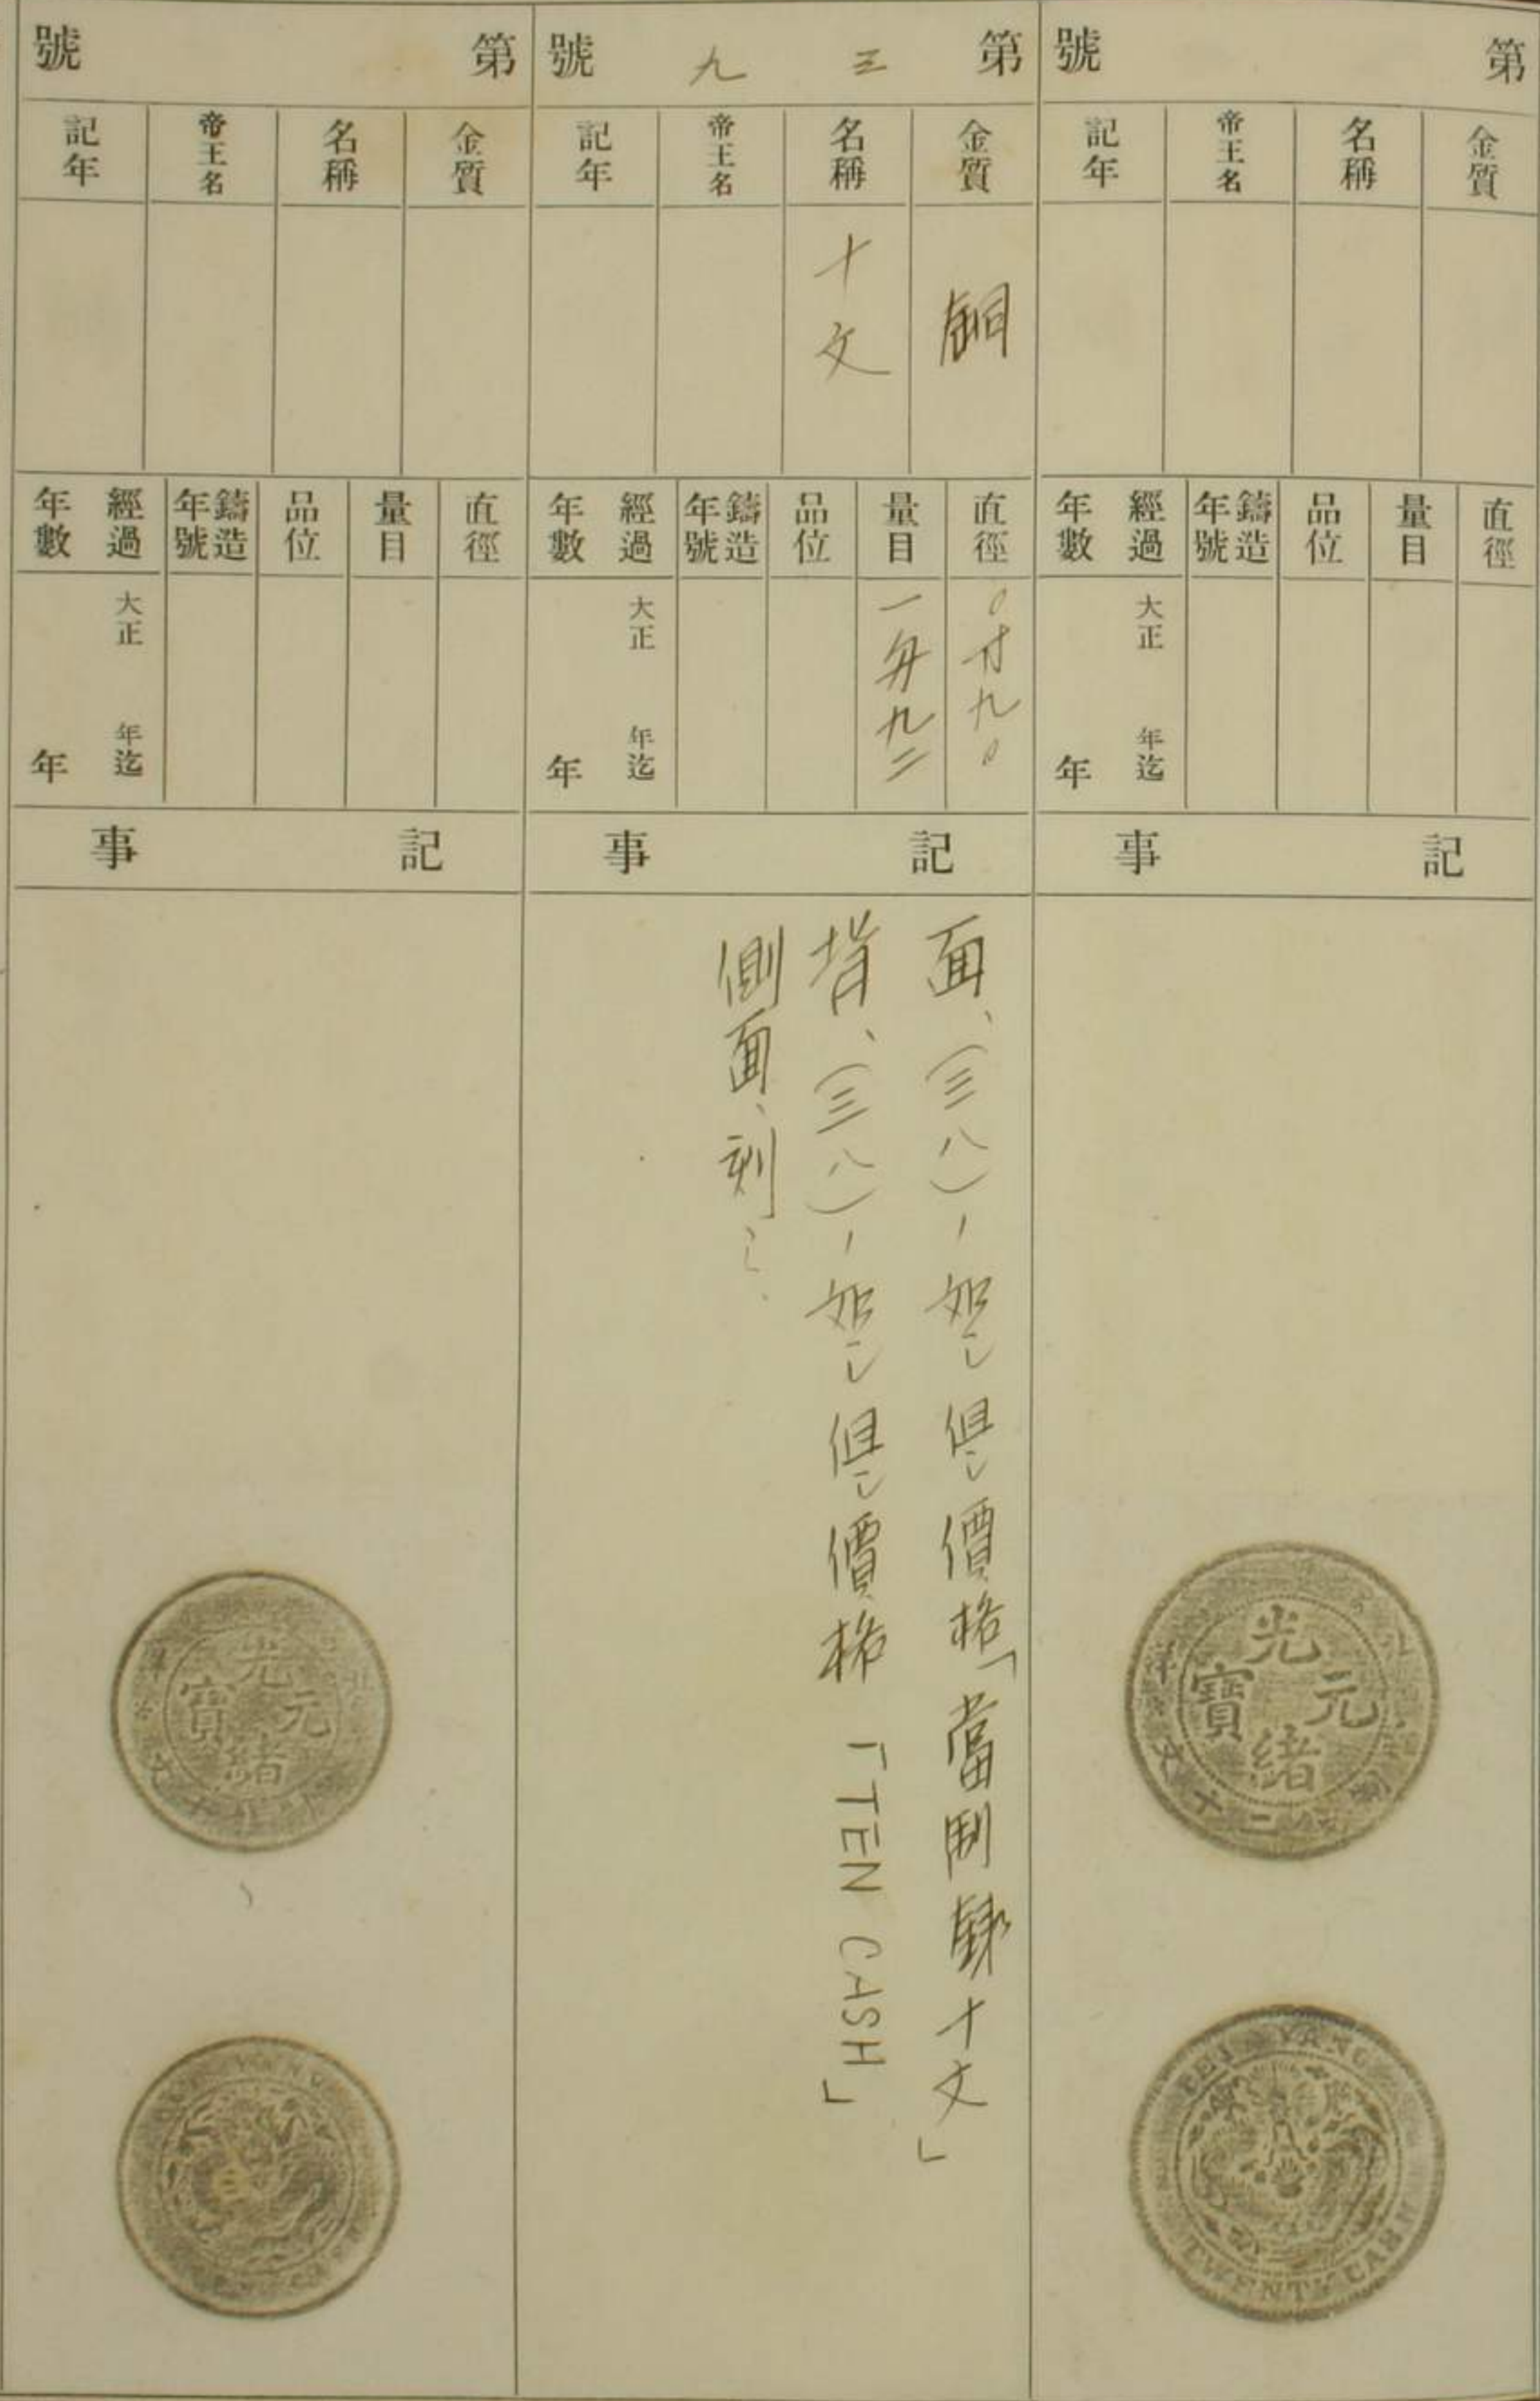 第 號
金質
名稱
帝王名
記年
直徑
量目
品位
鑄造年號
經過年數
大正 年迄
年
記 事
光緒元寶
PEI YANG
TWENTY CASH
第三九號
金質
銅
名稱
十文
帝王名
記年
直徑
〇寸九〇
量目
一匁九二
品位
鑄造年號
經過年數
大正 年迄
年
記 事
面、(三八)ノ如シ但シ價格「當制錢十文」
背、(三八)ノ如シ但シ價格「TEN CASH」
側面、刻ミ
第 號
金質
名稱
帝王名
記年
直徑
量目
品位
鑄造年號
經過年數
大正 年迄
年
記 事
光緒元寶
YANG